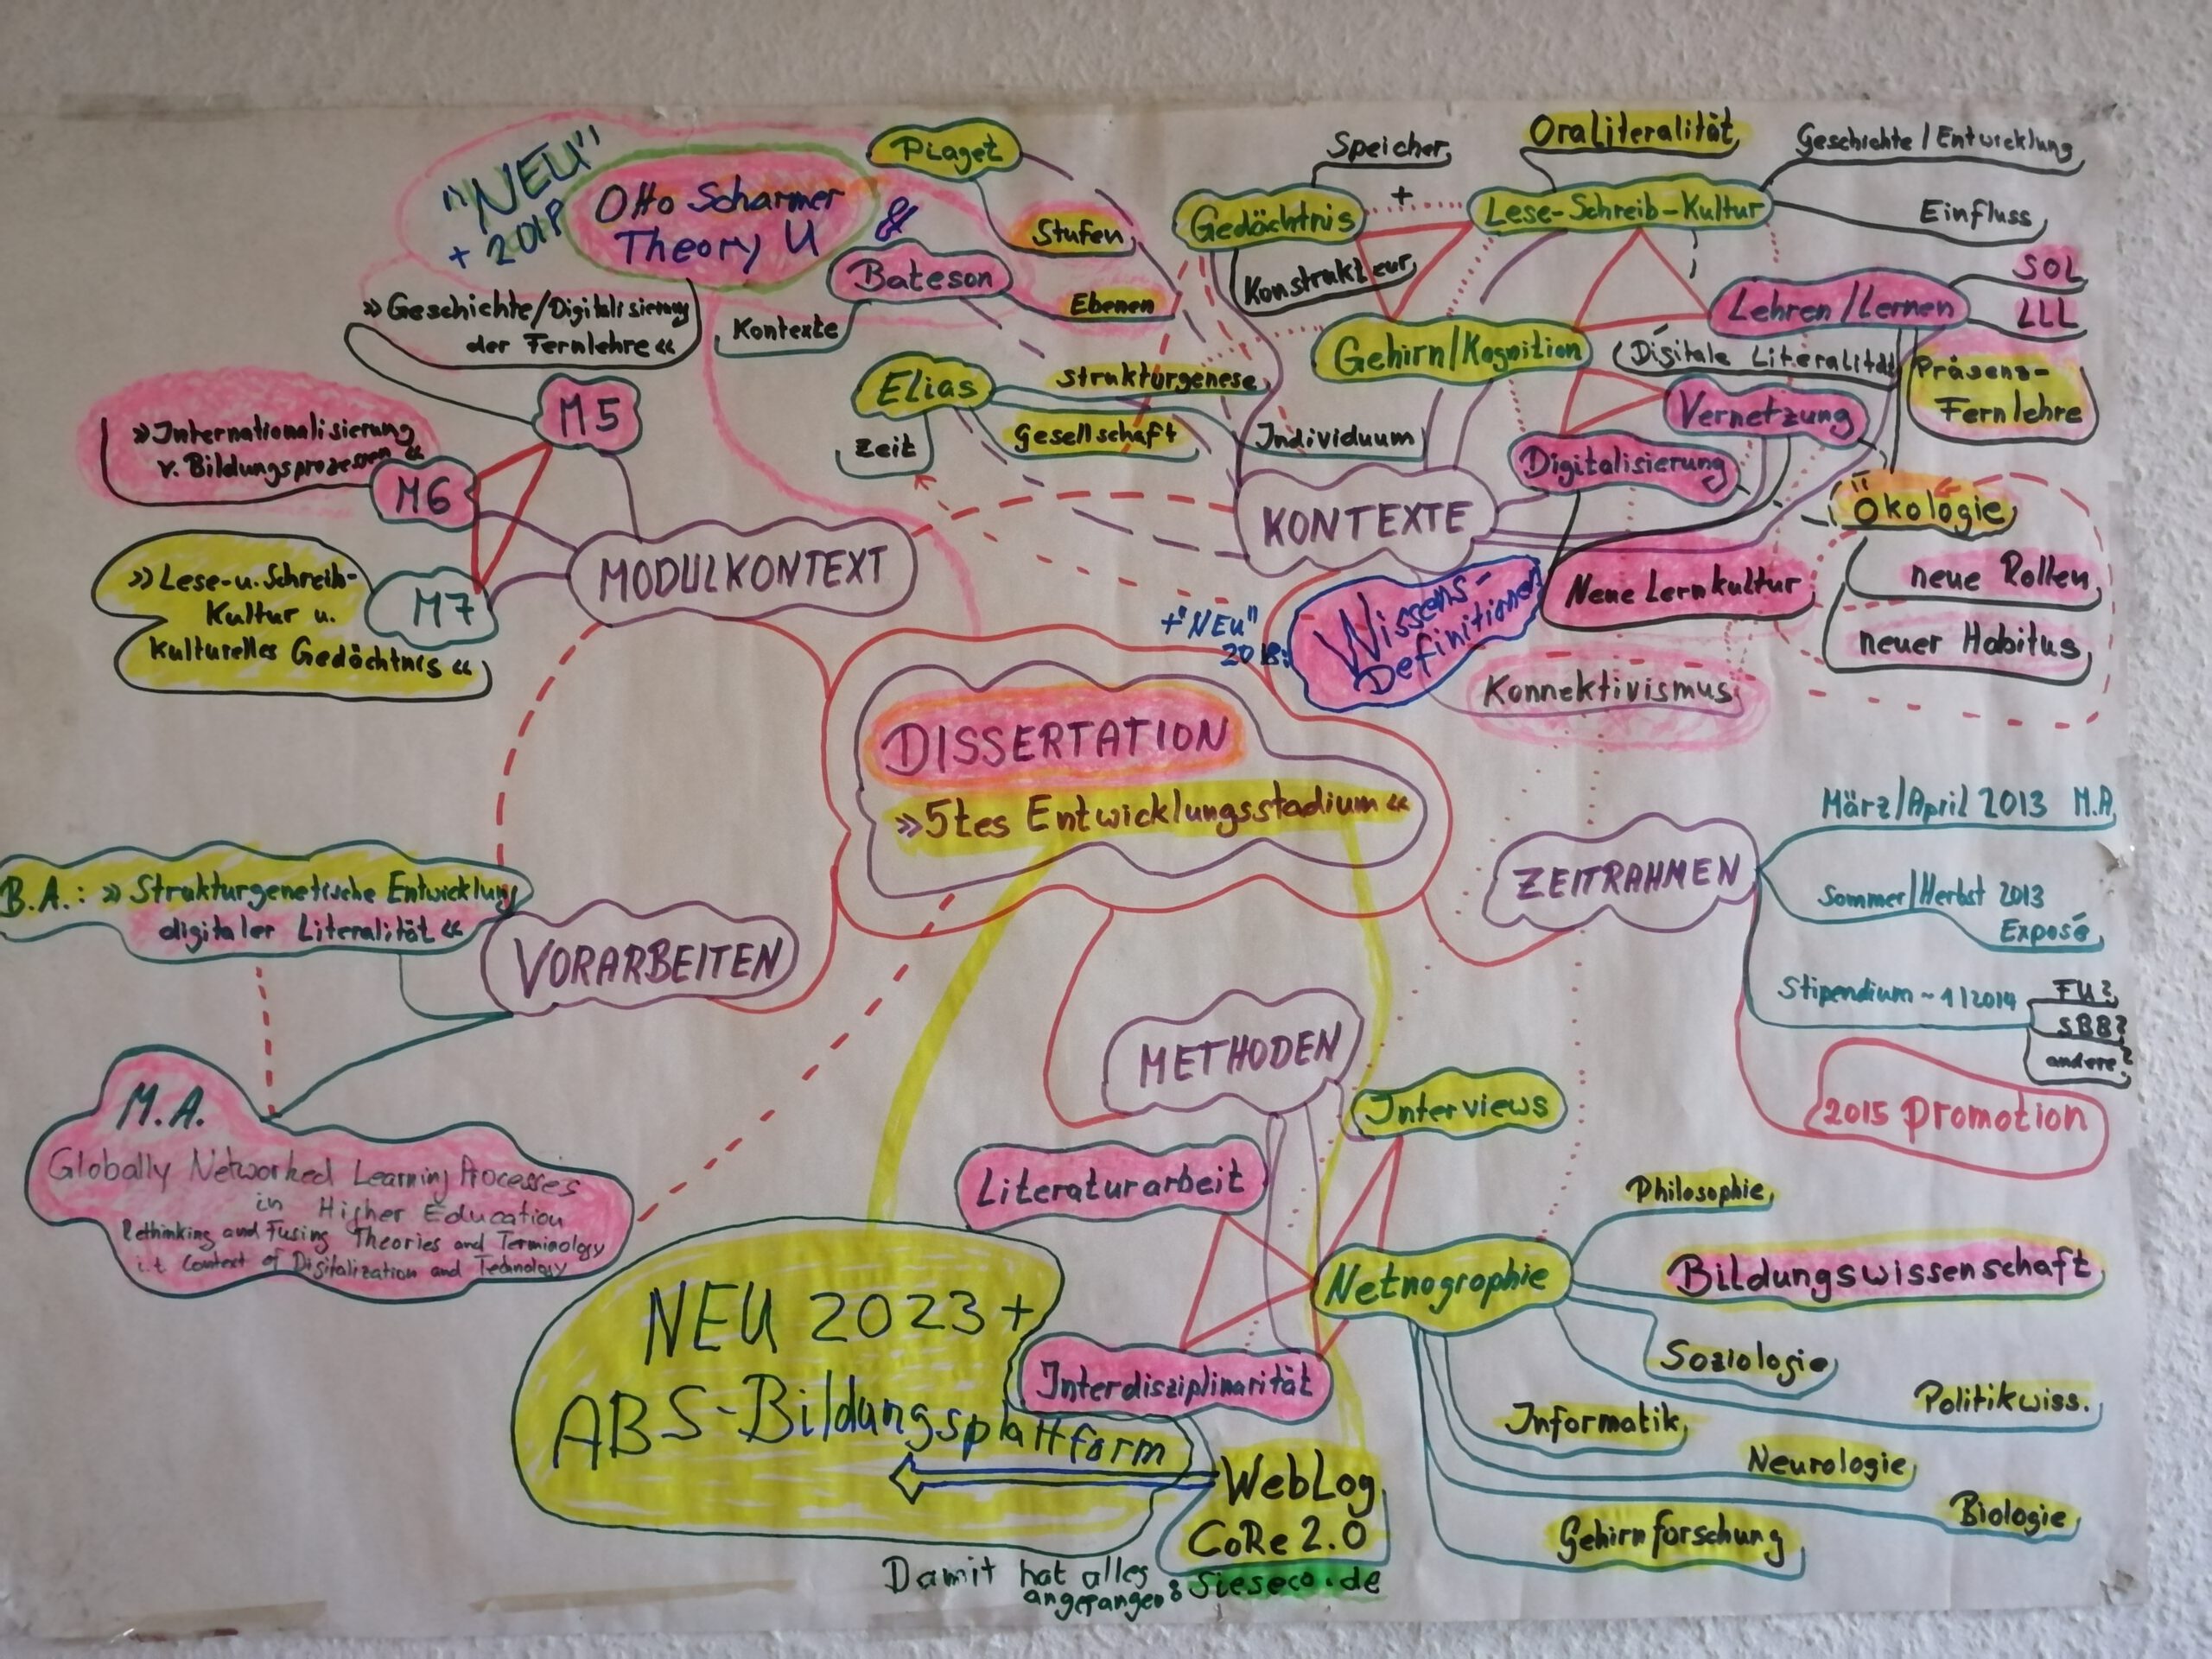 "NEU"
+ 2018
Otto Scharmer
Theory U
&
Piaget
Stufen
Bateson
Ebenen
Kontexte
»Geschichte/Digitalisierung
der Fernlehre«
M5
»Internationalisierung
v. Bildungsprozessen«
M6
»Lese-u.Schreib-
Kultur u.
kulturelles Gedächtnis«
M7
MODULKONTEXT
Elias
Strukturgenese
Gesellschaft
Individuum
Zeit
Speicher
+
Gedächtnis
Konstrukteur
Oraliteralität
Lese-Schreib-Kultur
Geschichte/Entwicklung
Einfluss
Lehren/Lernen
SOL
LLL
Präsenz-
Fernlehre
Gehirn/Kognition
(Digitale Literalität)
Vernetzung
Digitalisierung
KONTEXTE
Ökologie
neue Rollen
neuer Habitus
Neue Lernkultur
+"NEU"
2018:
Wissens-
Definitionen
Konnektivismus
DISSERTATION
»5tes Entwicklungsstadium«
ZEITRAHMEN
März/April 2013 M.A.
Sommer/Herbst 2013
Exposé
Stipendium ~ 1/2014
FU?
SBB?
andere?
2015 Promotion
B.A.: »Strukturgenetische Entwicklung
digitaler Literalität«
VORARBEITEN
M.A.
Globally Networked Learning Processes
in Higher Education
Rethinking and Fusing Theories and Terminology
i.t. Context of Digitalization and Technology
METHODEN
Interviews
Literaturarbeit
Netnographie
Interdisziplinarität
Philosophie
Bildungswissenschaft
Soziologie
Politikwiss.
Informatik
Neurologie
Biologie
Gehirnforschung
NEU 2023+
ABS-Bildungsplattform
WebLog
CoRe 2.0
Damit hat alles
angefangen: sieseco.de